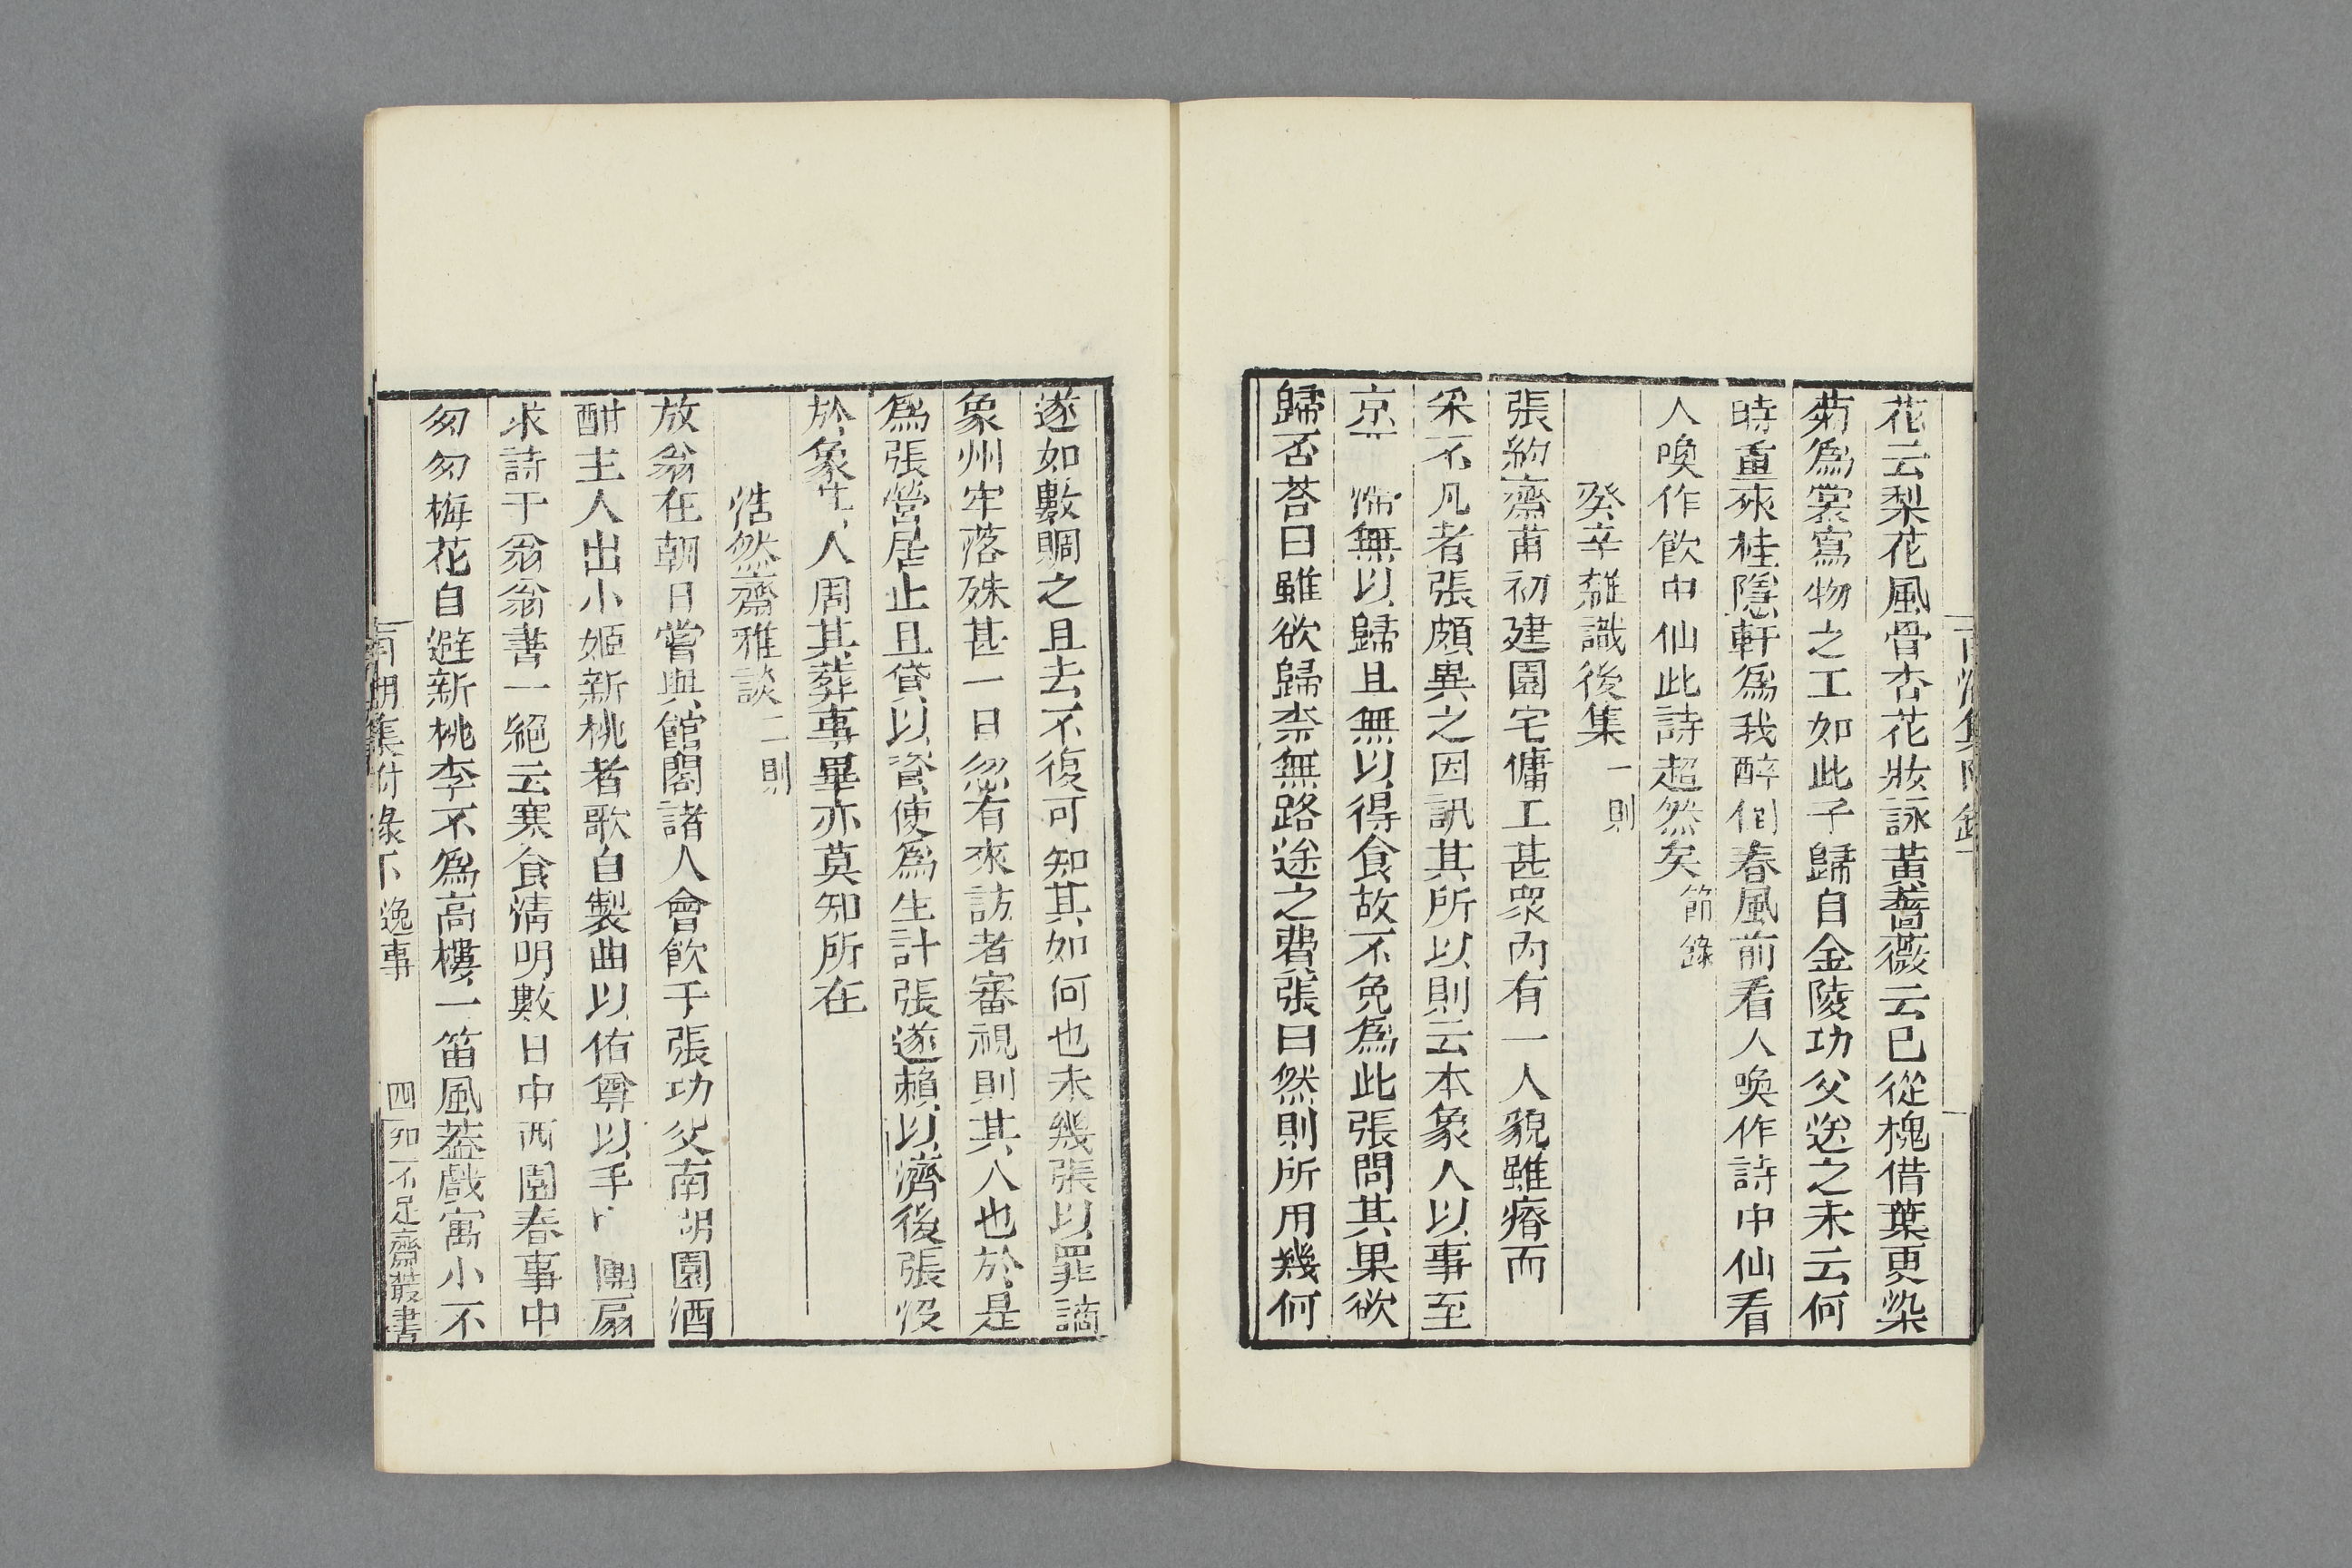 花云梨花風骨杏花妝詠黃薔薇云已從槐借葉更染
菊爲裳寫物之工如此子歸自金陵功父送之末云何
時重來桂隱軒爲我醉倒春風前看人喚作詩中仙看
人喚作飲中仙此詩超然矣節錄
癸辛雜識後集一則
張約齋甫初建園宅傭工甚眾內有一人貌雖瘠而
采不凡者張頗異之因訊其所以則云本象人以事至
京 無以歸且無以得食故不免爲此張問其果欲
歸否荅曰雖欲歸柰無路途之費張曰然則所用幾何
遂如數賙之且去不復可知其如何也未幾張以罪謫
象州牢落殊甚一日忽有來訪者審視則其人也於是
爲張營居止且貸以資使爲生計張遂賴以濟後張沒
於象其人周其葬事畢亦莫知所在
浩然齋雅談二則
放翁在朝日嘗與館閣諸人會飲于張功父南湖園酒
酣主人出小姬新桃者歌自製曲以侑尊以手 團扇
求詩于翁翁書一絕云寒食清明數日中西園春事中
匆匆梅花自避新桃李不爲高樓一笛風蓋戲寓小不
南湖集附錄下 逸事 四 知不足齋叢書